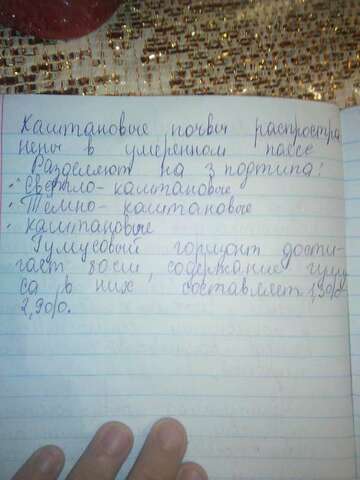 Каштановые почвы распростра
нены в умеренном поясе
Разделяют на 3 подтипа:
· Светло-каштановые
· Темно-каштановые
· каштановые
Гумусовый горизонт дости-
гает 80см, содержание гуму
са в них составляет 1,9%-
2,9%.